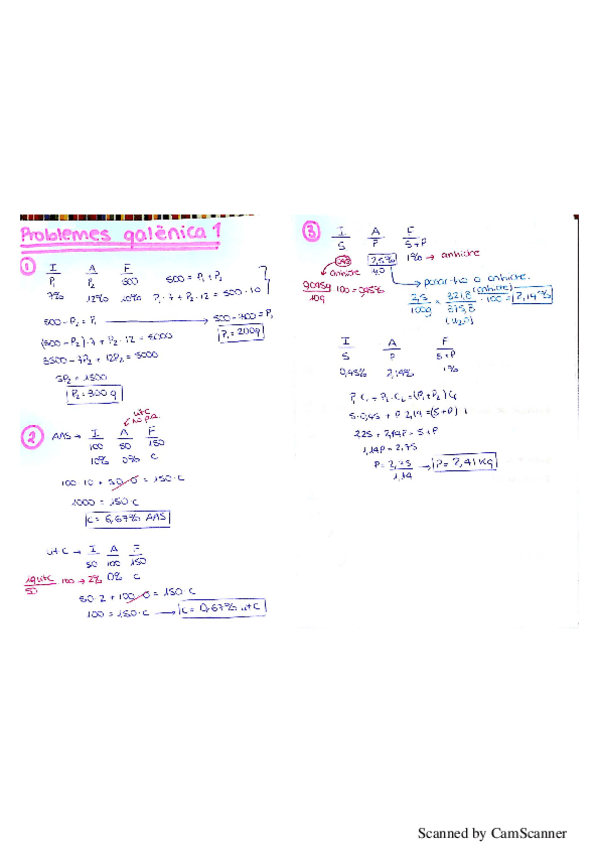 Problemes galènica 1
1
I A F
P₁ P₂ 500
7% 12% 10%
500 = P₁ + P₂
P₁ · 7 + P₂ · 12 = 500 · 10
500 - P₂ = P₁ → 500 - 300 = P₁
P₁ = 200g
(500 - P₂) · 7 + P₂ · 12 = 5000
3500 - 7P₂ + 12P₂ = 5000
5P₂ = 1500
P₂ = 300 g
2
vit C
no p.a.
AAS → I A F
100 50 150
10% 0% C
100 · 10 + 50 · 0 = 150 · C
1000 = 150 · C
C = 6,67% AAS
vit C → I A F
50 100 150
1g vit C / 50 · 100 → 2% 0% C
50 · 2 + 100 · 0 = 150 · C
100 = 150 · C → C = 0,67% vit C
3
I A F
S P S+P
2,5% 1% → anhidre
anhidre
10g · 100 = 0,45%
passar-ho a anhidre.
(anhidre)
100g · 100 = 2,14%
(H₂O)
I A F
S P S+P
0,45% 2,14% 1%
P₁ C₁ + P₂ · C₂ = (P₁ + P₂) Cf
5 · 0,45 + P · 2,14 = (5 + P) 1
2,25 + 2,14P = 5 + P
1,14P = 2,75
P = 2,75 / 1,14 → P = 2,41 Kg
Scanned by CamScanner